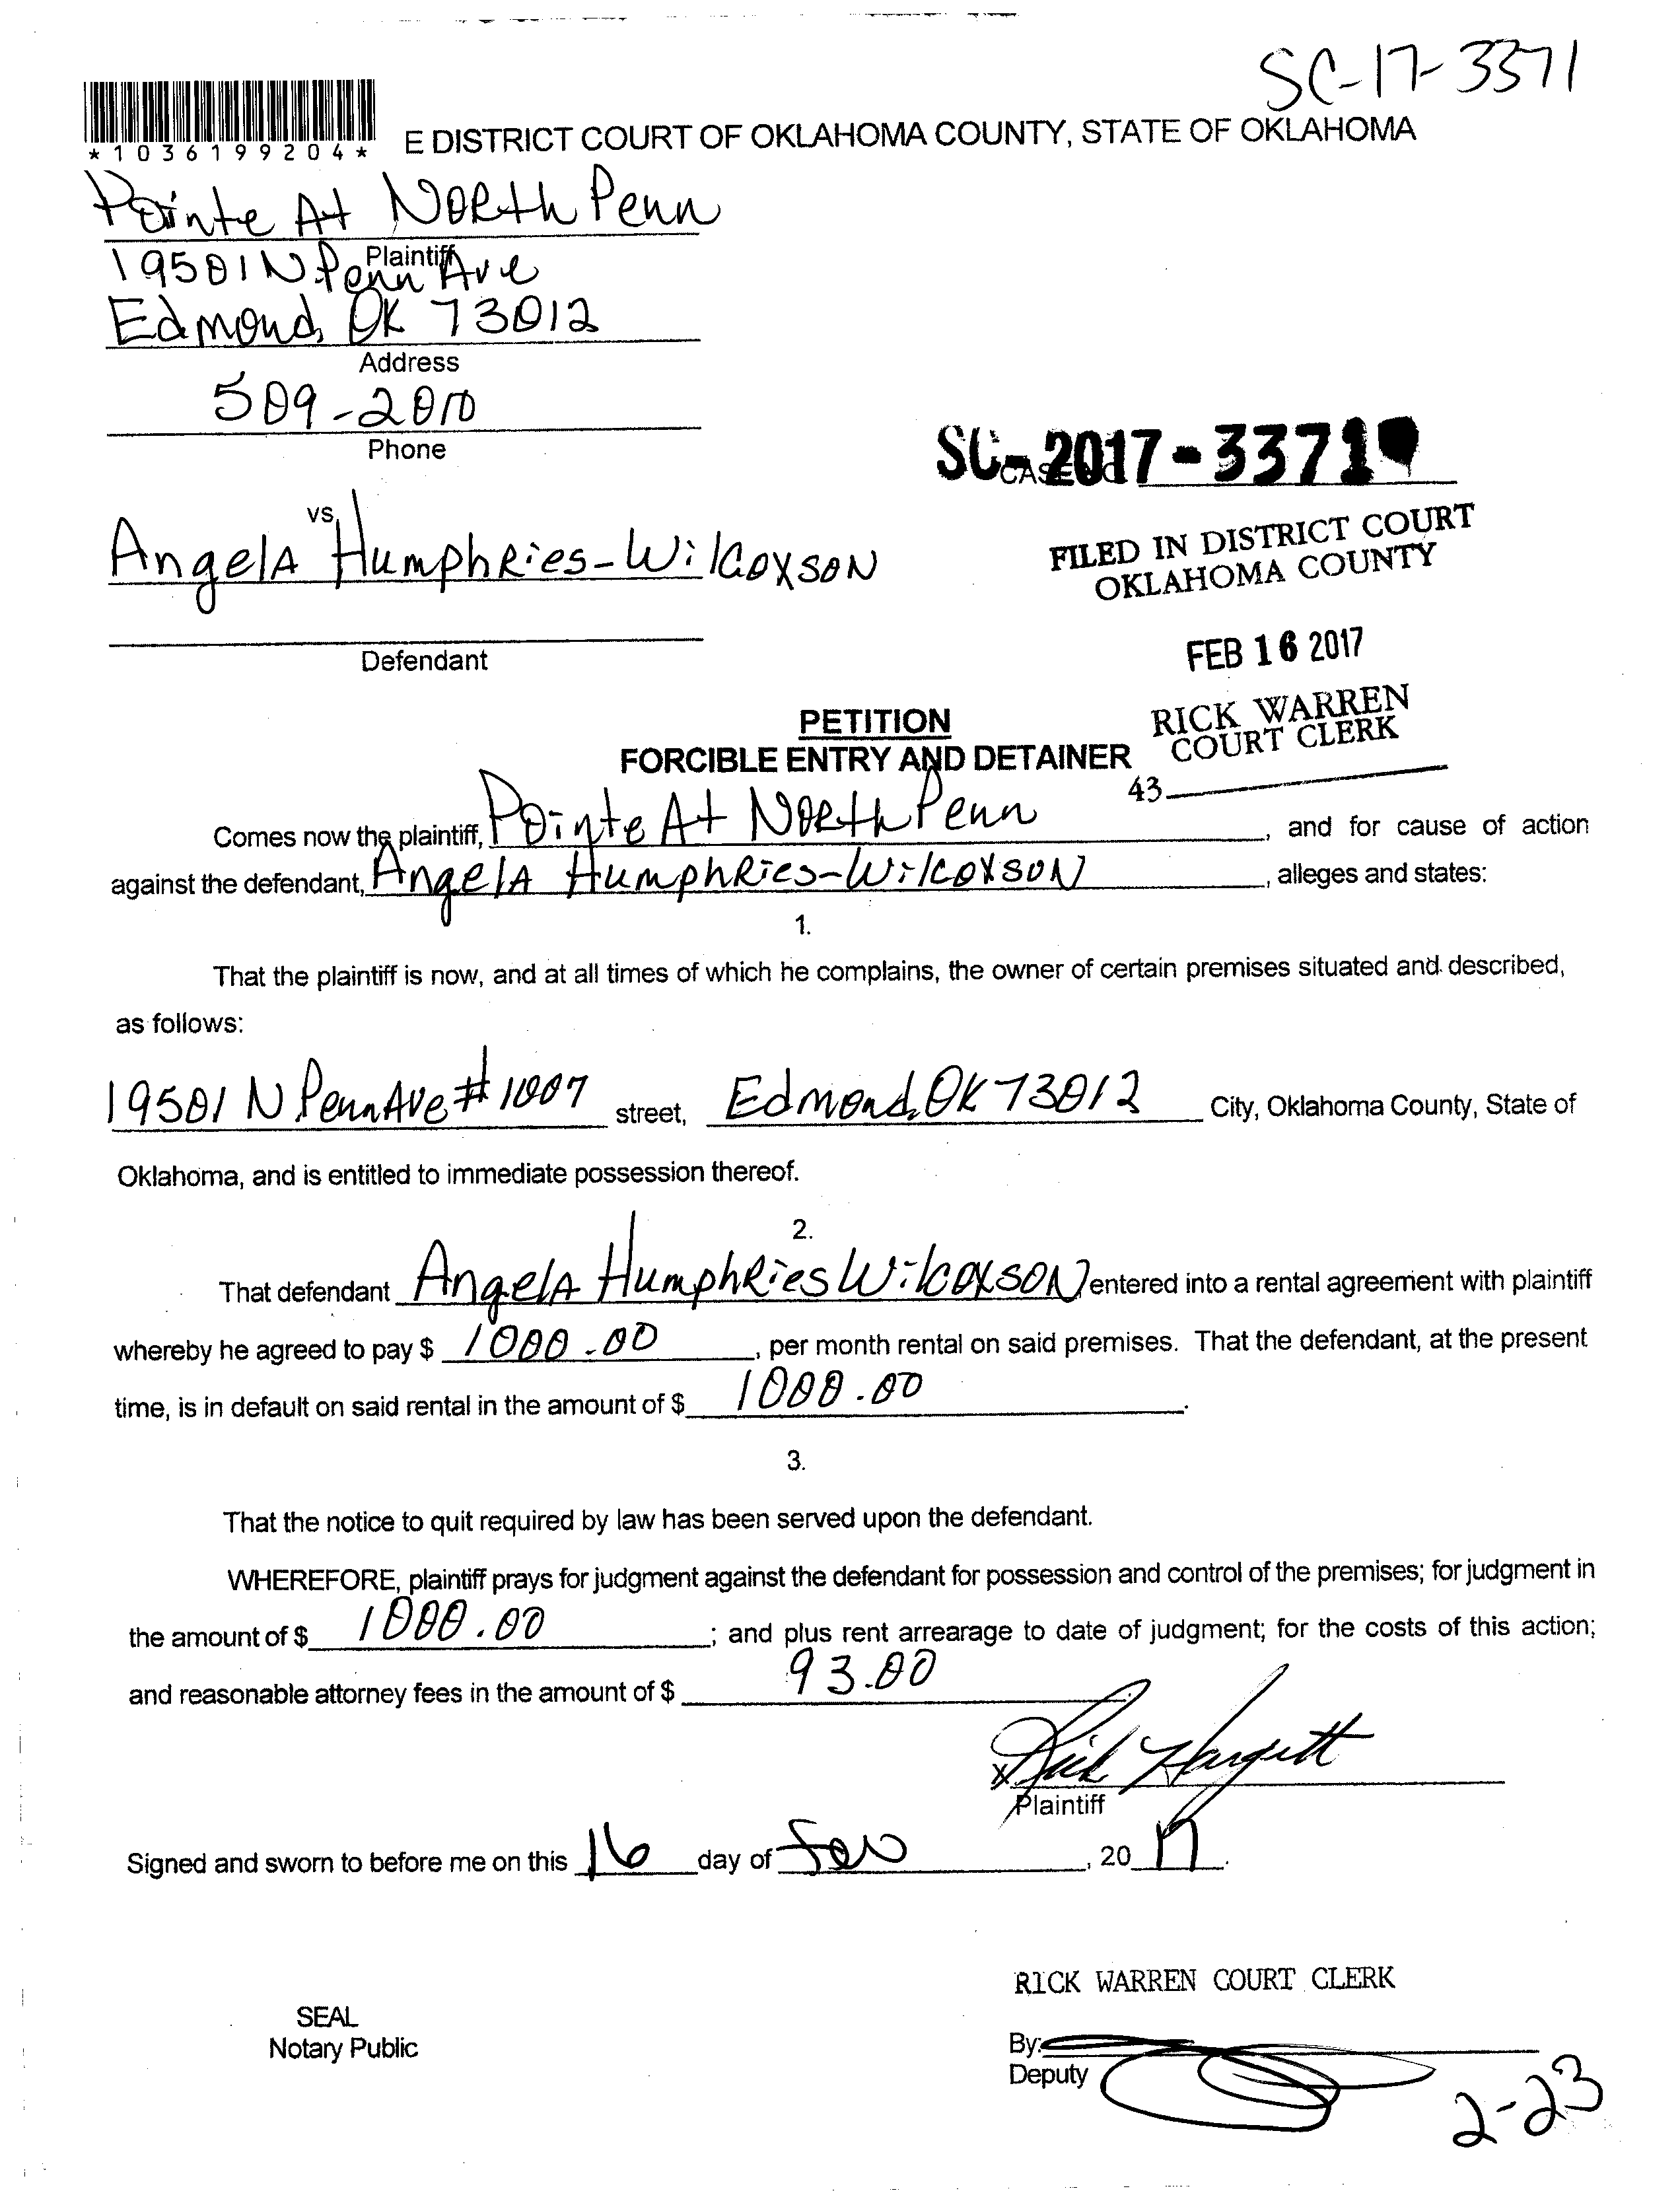 SC-17-3371
*1036199204*
E DISTRICT COURT OF OKLAHOMA COUNTY, STATE OF OKLAHOMA
Pointe At North Penn
Plaintiff
19501 N Penn Ave
Edmond, OK 73012
Address
509-2010
Phone
SC-2017-3371
vs.
Angela Humphries-Wilcoxson
FILED IN DISTRICT COURT
OKLAHOMA COUNTY
Defendant
FEB 16 2017
PETITION
FORCIBLE ENTRY AND DETAINER
RICK WARREN
COURT CLERK
43
Comes now the plaintiff, Pointe At North Penn, and for cause of action
against the defendant, Angela Humphries-Wilcoxson, alleges and states:
1.
That the plaintiff is now, and at all times of which he complains, the owner of certain premises situated and described,
as follows:
19501 N Penn Ave #1007 street, Edmond, OK 73012 City, Oklahoma County, State of
Oklahoma, and is entitled to immediate possession thereof.
2.
That defendant Angela Humphries Wilcoxson entered into a rental agreement with plaintiff
whereby he agreed to pay $ 1000.00, per month rental on said premises. That the defendant, at the present
time, is in default on said rental in the amount of $ 1000.00.
3.
That the notice to quit required by law has been served upon the defendant.
WHEREFORE, plaintiff prays for judgment against the defendant for possession and control of the premises; for judgment in
the amount of $ 1000.00; and plus rent arrearage to date of judgment; for the costs of this action;
and reasonable attorney fees in the amount of $ 93.00
x Rick Hargett
Plaintiff
Signed and sworn to before me on this 16 day of Feb, 2017.
RICK WARREN COURT CLERK
SEAL
Notary Public
By:
Deputy
2-23